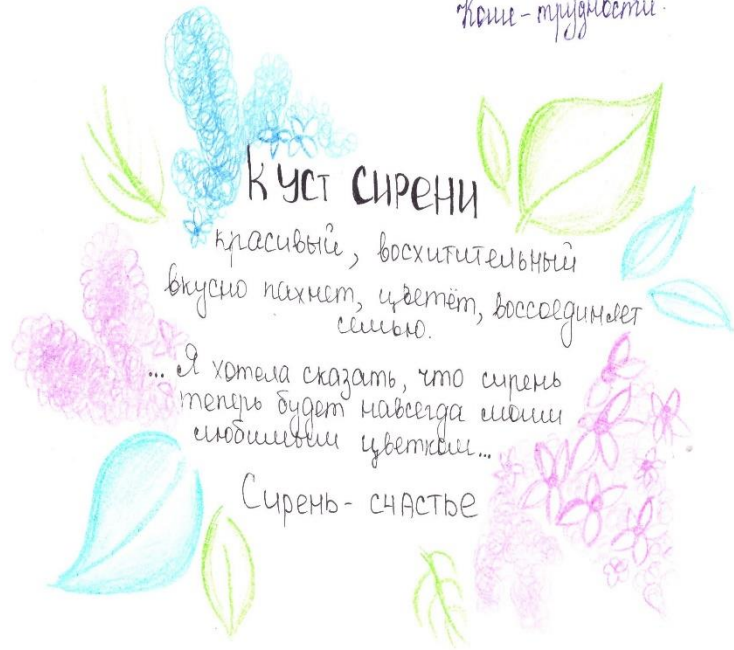 Кони-трудности.
Куст Сирени
красивый, восхитительный
вкусно пахнет, цветёт, воссоединяет
семью.
... Я хотела сказать, что сирень
теперь будет навсегда моим
любимым цветком...
Сирень- счастье